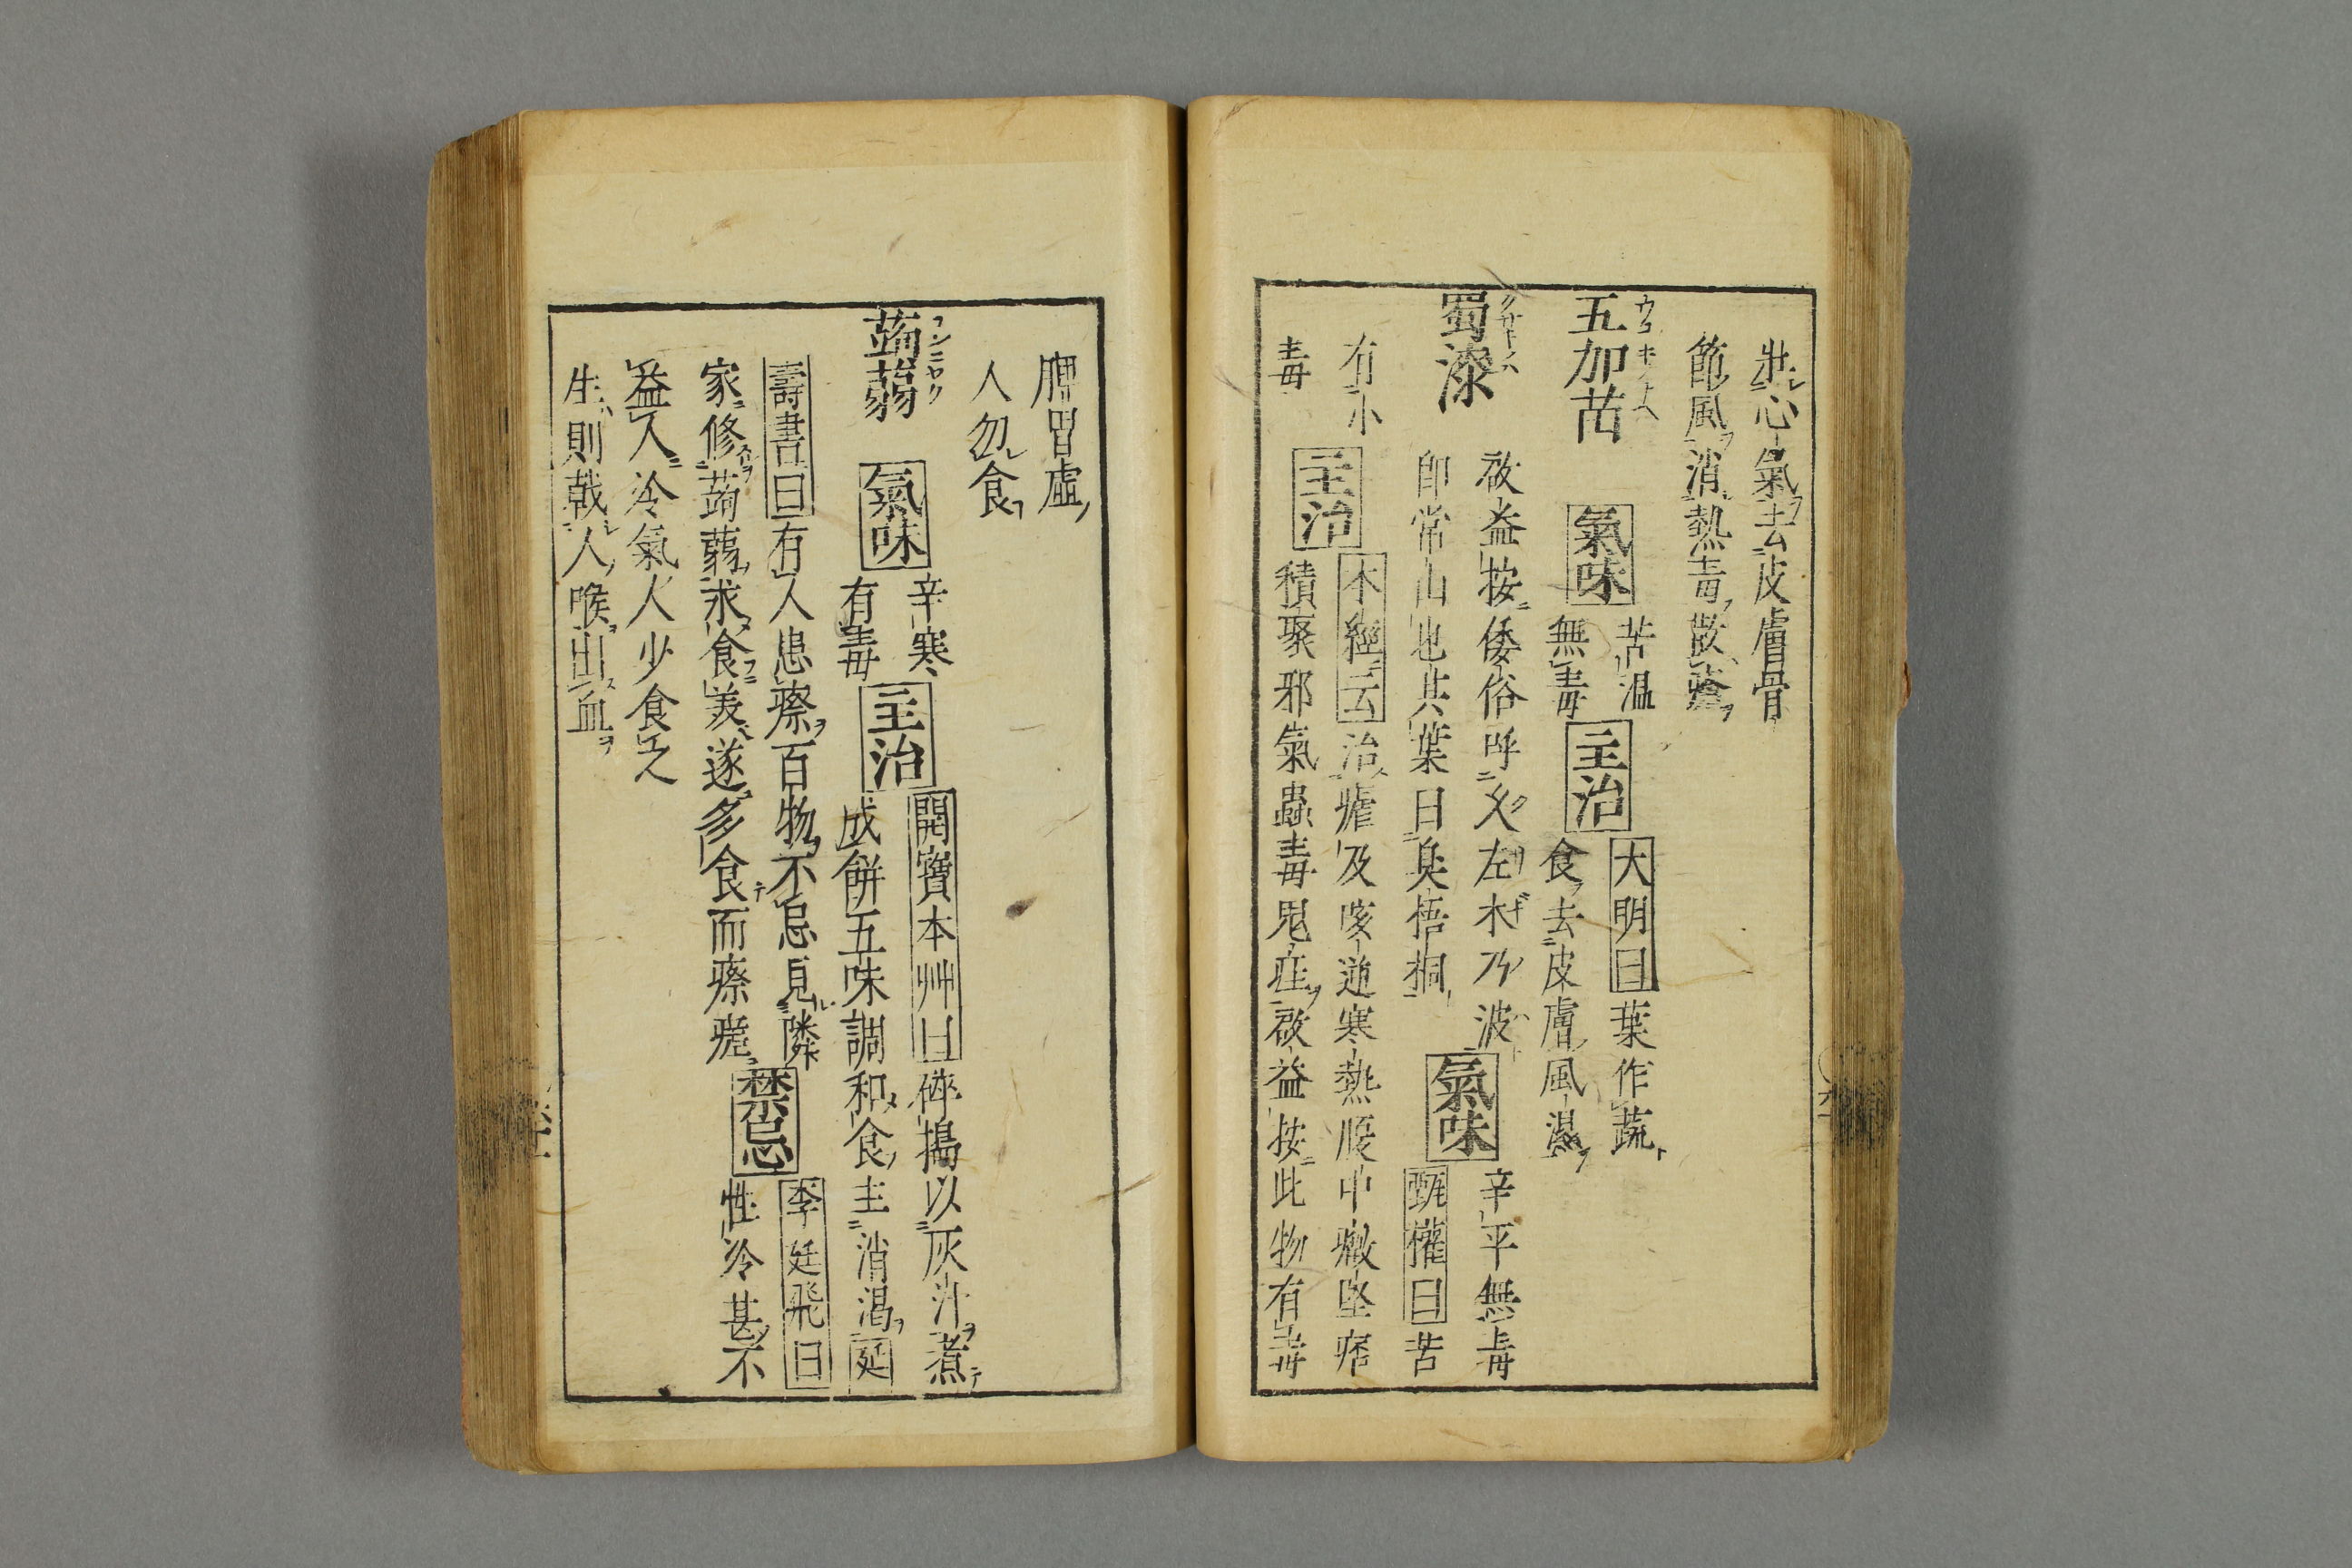 壯心氣去皮膚骨
節風消熱毒散瘡
五加苗 氣味 苦温
無毒 主治 大明曰葉作蔬
食去皮膚風濕
蜀漆 啟益按倭俗呼久左木乃波
即常山也其葉曰臭梧桐 氣味 辛平無毒
甄權曰苦
有小
毒 主治 本經云治瘧及咳逆寒熱腹中癥堅痞
積聚邪氣蠱毒鬼疰啟益按此物有毒
脾胃虛
人勿食
蒟蒻 氣味 辛寒
有毒 主治 開寶本艸曰碎搗以灰汁煮
成餅五味調和食主消渴延
壽書曰有人患瘵百物不忌見隣
家修蒟蒻求食美遂多食而瘵瘥 禁忌 李廷飛曰
性冷甚不
益人冷氣人少食之
生則戟人喉出血